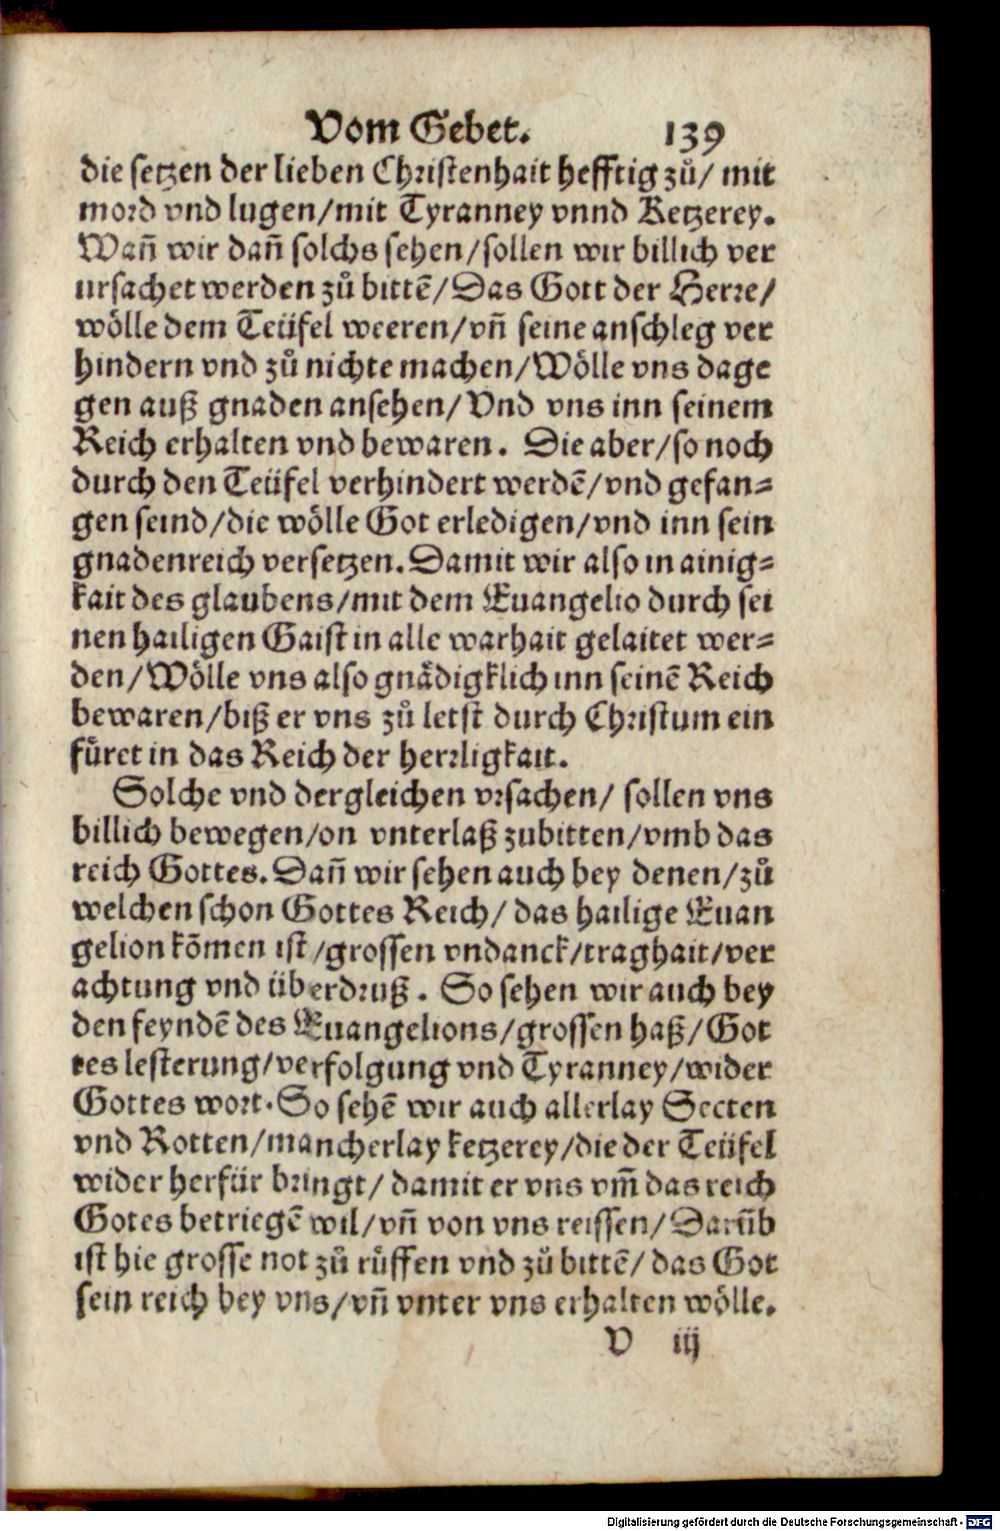 Vom Gebet. 139
die setzen der lieben Christenhait hefftig zů/ mit
mord vnd lugen/mit Tyranney vnnd Ketzerey.
Wañ wir dañ solchs sehen/sollen wir billich ver
ursachet werden zů bittē/Das Gott der Herre/
wölle dem Teüfel weeren/vñ seine anschleg ver
hindern vnd zů nichte machen/Wölle vns dage
gen auß gnaden ansehen/Vnd vns inn seinem
Reich erhalten vnd bewaren. Die aber/so noch
durch den Teüfel verhindert werdē/vnd gefan=
gen seind/die wölle Got erledigen/vnd inn sein
gnadenreich versetzen. Damit wir also in ainig=
kait des glaubens/mit dem Euangelio durch sei
nen hailigen Gaist in alle warhait gelaitet wer=
den/Wölle vns also gnädigklich inn seinē Reich
bewaren/biß er vns zů letst durch Christum ein
fůret in das Reich der herrligkait.
Solche vnd dergleichen vrsachen/ sollen vns
billich bewegen/on vnterlaß zubitten/vmb das
reich Gottes. Dañ wir sehen auch bey denen/zů
welchen schon Gottes Reich/ das hailige Euan
gelion kōmen ist/grossen vndanck/traghait/ver
achtung vnd überdruß. So sehen wir auch bey
den feyndē des Euangelions/grossen haß/Got
tes lesterung/verfolgung vnd Tyranney/wider
Gottes wort. So sehē wir auch allerlay Secten
vnd Rotten/mancherlay ketzerey/die der Teüfel
wider herfür bringt/ damit er vns vm̃ das reich
Gotes betriegē wil/vñ von vns reissen/Darūb
ist hie grosse not zů růffen vnd zů bittē/ das Got
sein reich bey vns/vñ vnter vns erhalten wölle.
V iij
Digitalisierung gefördert durch die Deutsche Forschungsgemeinschaft - DFG